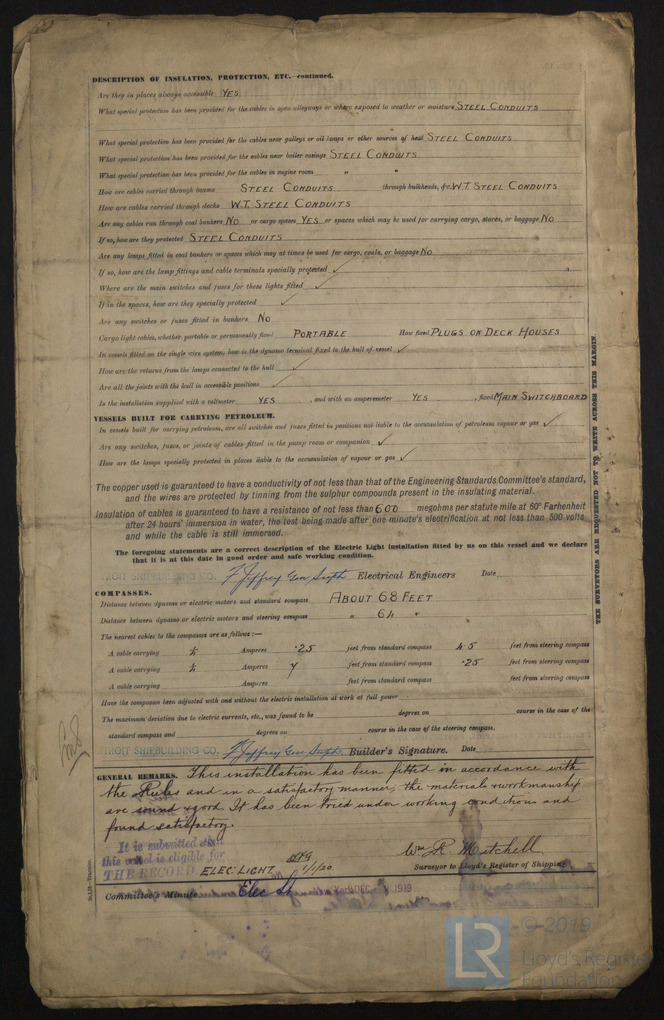 DESCRIPTION OF INSULATION, PROTECTION, ETC.—continued.
Are they in places always accessible YES
What special protection has been provided for the cables in open alleyways or where exposed to weather or moisture STEEL CONDUITS
What special protection has been provided for the cables near galleys or oil lamps or other sources of heat STEEL CONDUITS
What special protection has been provided for the cables near boiler casings STEEL CONDUITS
What special protection has been provided for the cables in engine room " "
How are cables carried through beams STEEL CONDUITS through bulkheads, &c. W.T. STEEL CONDUITS
How are cables carried through decks W.T. STEEL CONDUITS
Are any cables run through coal bunkers NO or cargo spaces YES or spaces which may be used for carrying cargo, stores, or baggage NO
If so, how are they protected STEEL CONDUITS
Are any lamps fitted in coal bunkers or spaces which may at times be used for cargo, coals, or baggage NO
If so, how are the lamp fittings and cable terminals specially protected ✓
Where are the main switches and fuses for these lights fitted ✓
If in the spaces, how are they specially protected ✓
Are any switches or fuses fitted in bunkers NO
Cargo light cables, whether portable or permanently fixed PORTABLE How fixed PLUGS ON DECK HOUSES
In vessels fitted on the single wire system, how is the dynamo terminal fixed to the hull of vessel ✓
How are the returns from the lamps connected to the hull ✓
Are all the joints with the hull in accessible positions ✓
Is the installation supplied with a voltmeter YES , and with an amperemeter YES , fixed MAIN SWITCHBOARD
VESSELS BUILT FOR CARRYING PETROLEUM.
In vessels built for carrying petroleum, are all switches and fuses fitted in positions not liable to the accumulation of petroleum vapour or gas ✓
Are any switches, fuses, or joints of cables fitted in the pump room or companion ✓
How are the lamps specially protected in places liable to the accumulation of vapour or gas ✓
The copper used is guaranteed to have a conductivity of not less than that of the Engineering Standards Committee's standard,
and the wires are protected by tinning from the sulphur compounds present in the insulating material.
Insulation of cables is guaranteed to have a resistance of not less than 600 megohms per statute mile at 60° Farhenheit
after 24 hours' immersion in water, the test being made after one minute's electrification at not less than 500 volts
and while the cable is still immersed.
The foregoing statements are a correct description of the Electric Light installation fitted by us on this vessel and we declare
that it is at this date in good order and safe working condition.
TROIT SHIPBUILDING CO. F Jeffrey Gen Supt. Electrical Engineers Date
COMPASSES.
Distance between dynamo or electric motors and standard compass ABOUT 68 FEET
Distance between dynamo or electric motors and steering compass " 64 "
The nearest cables to the compasses are as follows:—
A cable carrying ¼ Amperes .25 feet from standard compass 4.5 feet from steering compass
A cable carrying ¼ Amperes 7 feet from standard compass .25 feet from steering compass
A cable carrying Amperes feet from standard compass feet from steering compass
Have the compasses been adjusted with and without the electric installation at work at full power
The maximum deviation due to electric currents, etc., was found to be degrees on course in the case of the
standard compass and degrees on course in the case of the steering compass.
TROIT SHIPBUILDING CO. F Jeffrey Gen Supt. Builder's Signature. Date
GENERAL REMARKS. This installation has been fitted in accordance with
the Rules and in a satisfactory manner, the materials & workmanship
are sound & good. It has been tried under working conditions and
found satisfactory.
It is submitted that
this vessel is eligible for
THE RECORD ELEC. LIGHT 1/1/20
Wm R. Mitchell
Surveyor to Lloyd's Register of Shipping
Committee's Minute Elec Lt DEC. 1919
THE SURVEYORS ARE REQUESTED NOT TO WRITE ACROSS THIS MARGIN
© 2019
LR
Lloyd's Register
Foundation